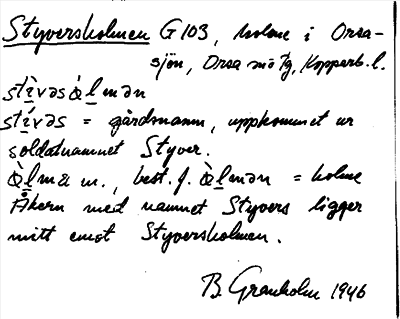 Styversholmen G 103, holme i Orsa-
sjön, Orsa sn o tg, Kopparb. l.
stì̲vəsò̲l̲mən
stì̲vəs = gårdsnamn, uppkommet ur
soldatnamnet Styver.
ò̲l̲mə m., best. f. ò̲l̲mən = holme
Åkern med namnet Styvers ligger
mitt emot Styversholmen.
B. Granholm 1946